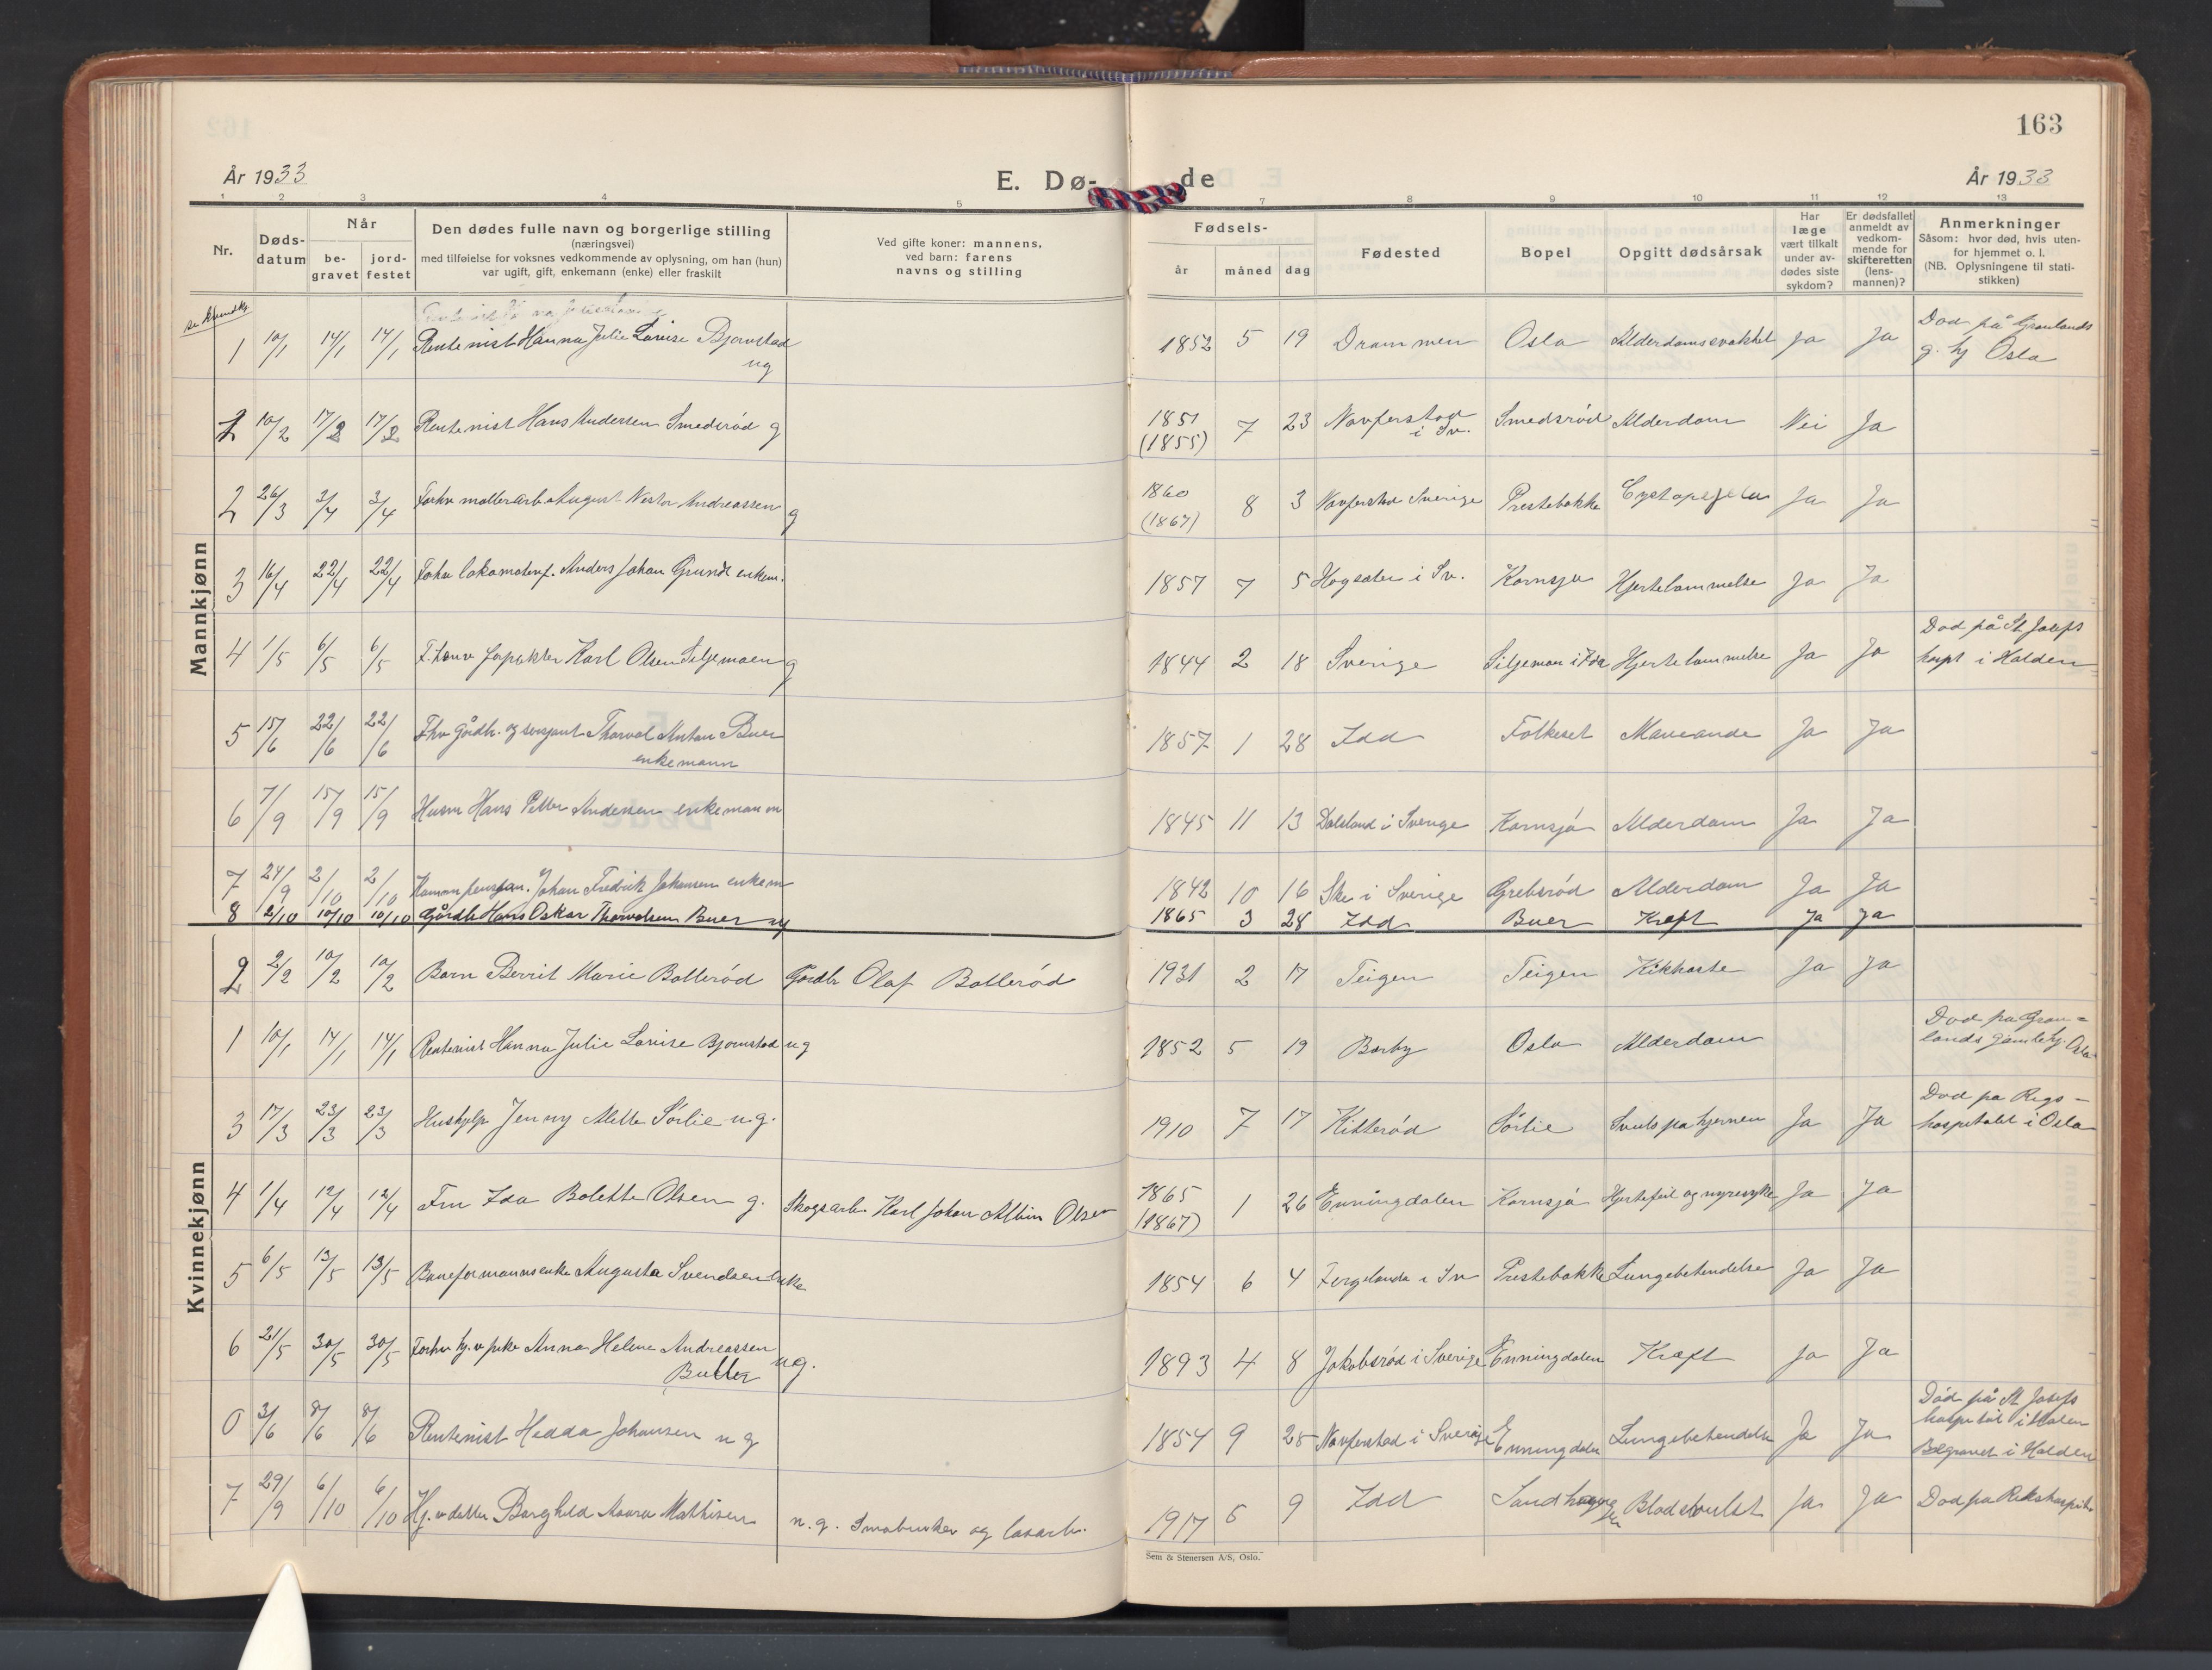 163
År 1933 E. Dø- de År 1933
1 2 3 4 5 7 8 9 10 11 12 13
Nr. Døds-datum Når be-gravet jord-festet Den dødes fulle navn og borgerlige stilling (næringsvei) med tilføielse for voksnes vedkommende av oplysning, om han (hun) var ugift, gift, enkemann (enke) eller fraskilt Ved gifte koner: mannens, ved barn: farens navns og stilling Fødsels- år måned dag Fødested Bopel Opgitt dødsårsak Har læge vært tilkalt under av-dødes siste sykdom? Er dødsfallet anmeldt av vedkom-mende for skifteretten (lens-mannen)? Anmerkninger Såsom: hvor død, hvis uten-for hjemmet o. l. (NB. Oplysningene til stati-stikken)
Mannkjønn
se kvindkj
1 10/1 14/1 14/1 Rentenist Hanna Julie Lovise Bjornstad ug 1852 5 19 Drammen Oslo Alderdomsvakhet Ja Ja Dod på Gronlands g. hj Oslo
1 10/2 17/2 17/2 Rentenist Hans Andersen Smedsrød g 1851 (1855) 7 23 Navferstad i Sv. Smedsrød Alderdom Nei Ja
2 26/3 3/4 3/4 Forhv mollerarb August Nestor Andreassen g 1860 (1867) 8 3 Navferstad Sverige Prestebakke Ja Ja
3 16/4 22/4 22/4 Forhv lokomotivf. Anders Johan Grundt enkem. 1857 7 5 Hogsater i Sv. Kornsjø Hjertelammelse Ja Ja
4 1/5 6/5 6/5 F.henv forpakter Karl Olsen Siljemoen g 1844 2 18 Sverige Siljemoen i Idd Hjertelammelse Ja Ja Dod på St Josefs hospt i Halden
5 15/6 22/6 22/6 Fhv gårdb. og sersjant Thorval Anton Buer enkemann 1857 1 28 Idd Folkeset Maveonde Ja Ja
6 7/9 15/9 15/9 Husm Hans Petter Andersen enkemann 1845 11 13 Dalsland i Sverige Kornsjø Alderdom Ja Ja
7 24/9 2/10 2/10 Kommunepensjon. Johan Fredrik Johansen enkem 1842 10 16 Ske i Sverige Grebsrød Alderdom Ja Ja
8 2/10 10/10 10/10 Gårdb Hans Oskar Thorvalsen Buer ug 1865 3 28 Idd Buer Kreft Ja Ja
Kvinnekjønn
2 2/2 10/2 10/2 Barn Berrit Marie Bollerød Gårdb Olaf Bollerød 1931 2 17 Teigen Teigen Kikhoste Ja Ja
1 10/1 14/1 14/1 Rentenist Hanna Julie Lovise Bjornstad ug 1852 5 19 Berby Oslo Alderdom Dod pa Gron=lands gamlehj. Oslo
3 17/3 23/3 23/3 Hushjelp Jenny Alette Sørlie ug. 1910 7 17 Kitterød Sørlie Svulst pa hjernen Ja Ja Dod pa Rigs-hospitalet i Oslo
4 1/4 12/4 12/4 Fru Ida Bolette Olsen g. Skogsarb. Karl Johan Albin Olsen 1865 (1867) 1 26 Enningdalen Kornsjø Hjertefeil og nyresyke Ja Ja
5 6/5 13/5 13/5 Baneformannsenke Augusta Svendsen Enke 1854 6 4 Fergelanda i Sv Prestebakke Lungebetendelse Ja Ja
6 21/5 30/5 30/5 Forhv hj.v pike Anna Helene Andreassen Buller ug. 1893 4 8 Jakobsrød i Sverige Enningdalen Kreft Ja Ja
0 3/6 8/6 8/6 Rentenist Hedda Johansen ug 1854 9 25 Navferstad i Sverige Enningdalen Lungebetendelse Ja Ja Død på St Josefs hospital i Halden Begravet i Halden
7 29/9 6/10 6/10 Hj.v datter Borghild Maura Mathisen n.g. Smabruker og losarb. 1917 6 9 Idd Sandhaugen Blodsvulst Ja Ja Dod pa Rikshospit.
Sem & Stenersen A/S, Oslo.